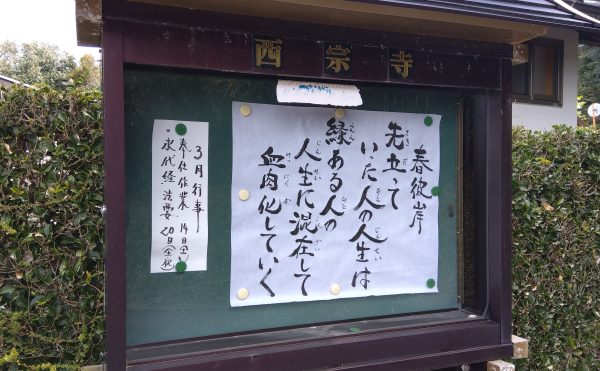 西宗寺
春彼岸
先立って
いった人の人生は
縁ある人の
人生に混在して
血肉化していく
3月行事
。奉仕作業 14日(土)
。永代経法要 20日(金祝)